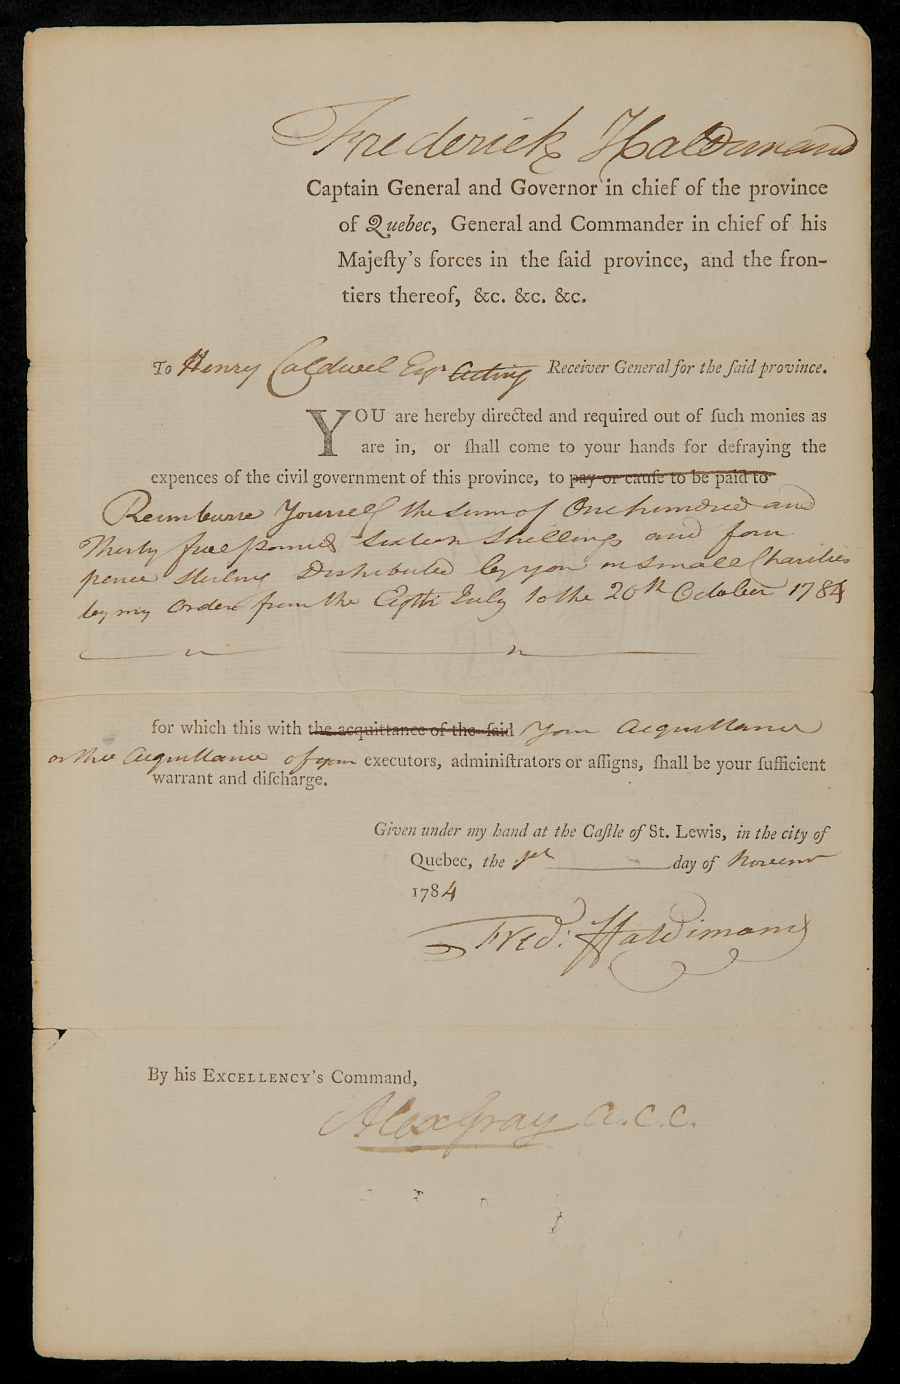 Frederick Haldimand
Captain General and Governor in chief of the province
of Quebec, General and Commander in chief of his
Majeſty's forces in the ſaid province, and the fron-
tiers thereof, &c. &c. &c.
To Henry Caldwell Esqr Acting Receiver General for the ſaid province.
YOU are hereby directed and required out of ſuch monies as
are in, or ſhall come to your hands for defraying the
expences of the civil government of this province, to pay or cauſe to be paid to
Reimburse Yourself the sum of One hundred and
Thirty five pounds Sixteen Shillings and four
pence Sterling Distributed by you in small Charities
by my Order from the July to the 20th October 1784
for which this with the acquittance of the ſaid Your Acquittance
or the Acquittance of your executors, adminiſtrators or aſſigns, ſhall be your ſufficient
warrant and diſcharge.
Given under my hand at the Caſtle of St. Lewis, in the city of
Quebec, the day of
1784
Fred: Haldimand
By his EXCELLENCY's Command,
Alex Gray A.C.C.